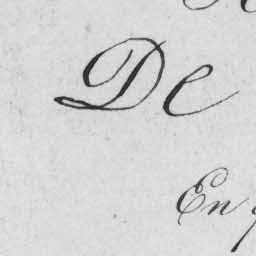 De
En